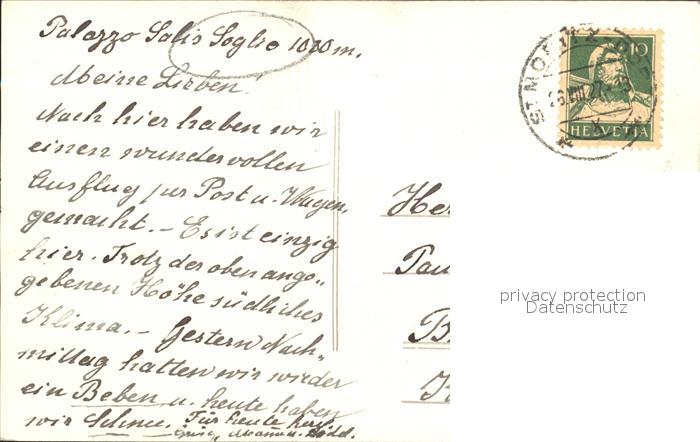 Palazzo Salis Soglio 1080 m.
Meine Lieben!
Nach hier haben wir
einen wundervollen
Ausflug per Post u. Wagen
gemacht. – Es ist einzig
hier. Trotz der oben ange-
gebenen Höhe südliches
Klima. – Gestern Nach-
mittag hatten wir wieder
ein Beben u. heute haben
wir Schnee. Für heute
Mann u.
ST. MORITZ
HELVETIA
10
Her
Pau
B
privacy protection
Datenschutz